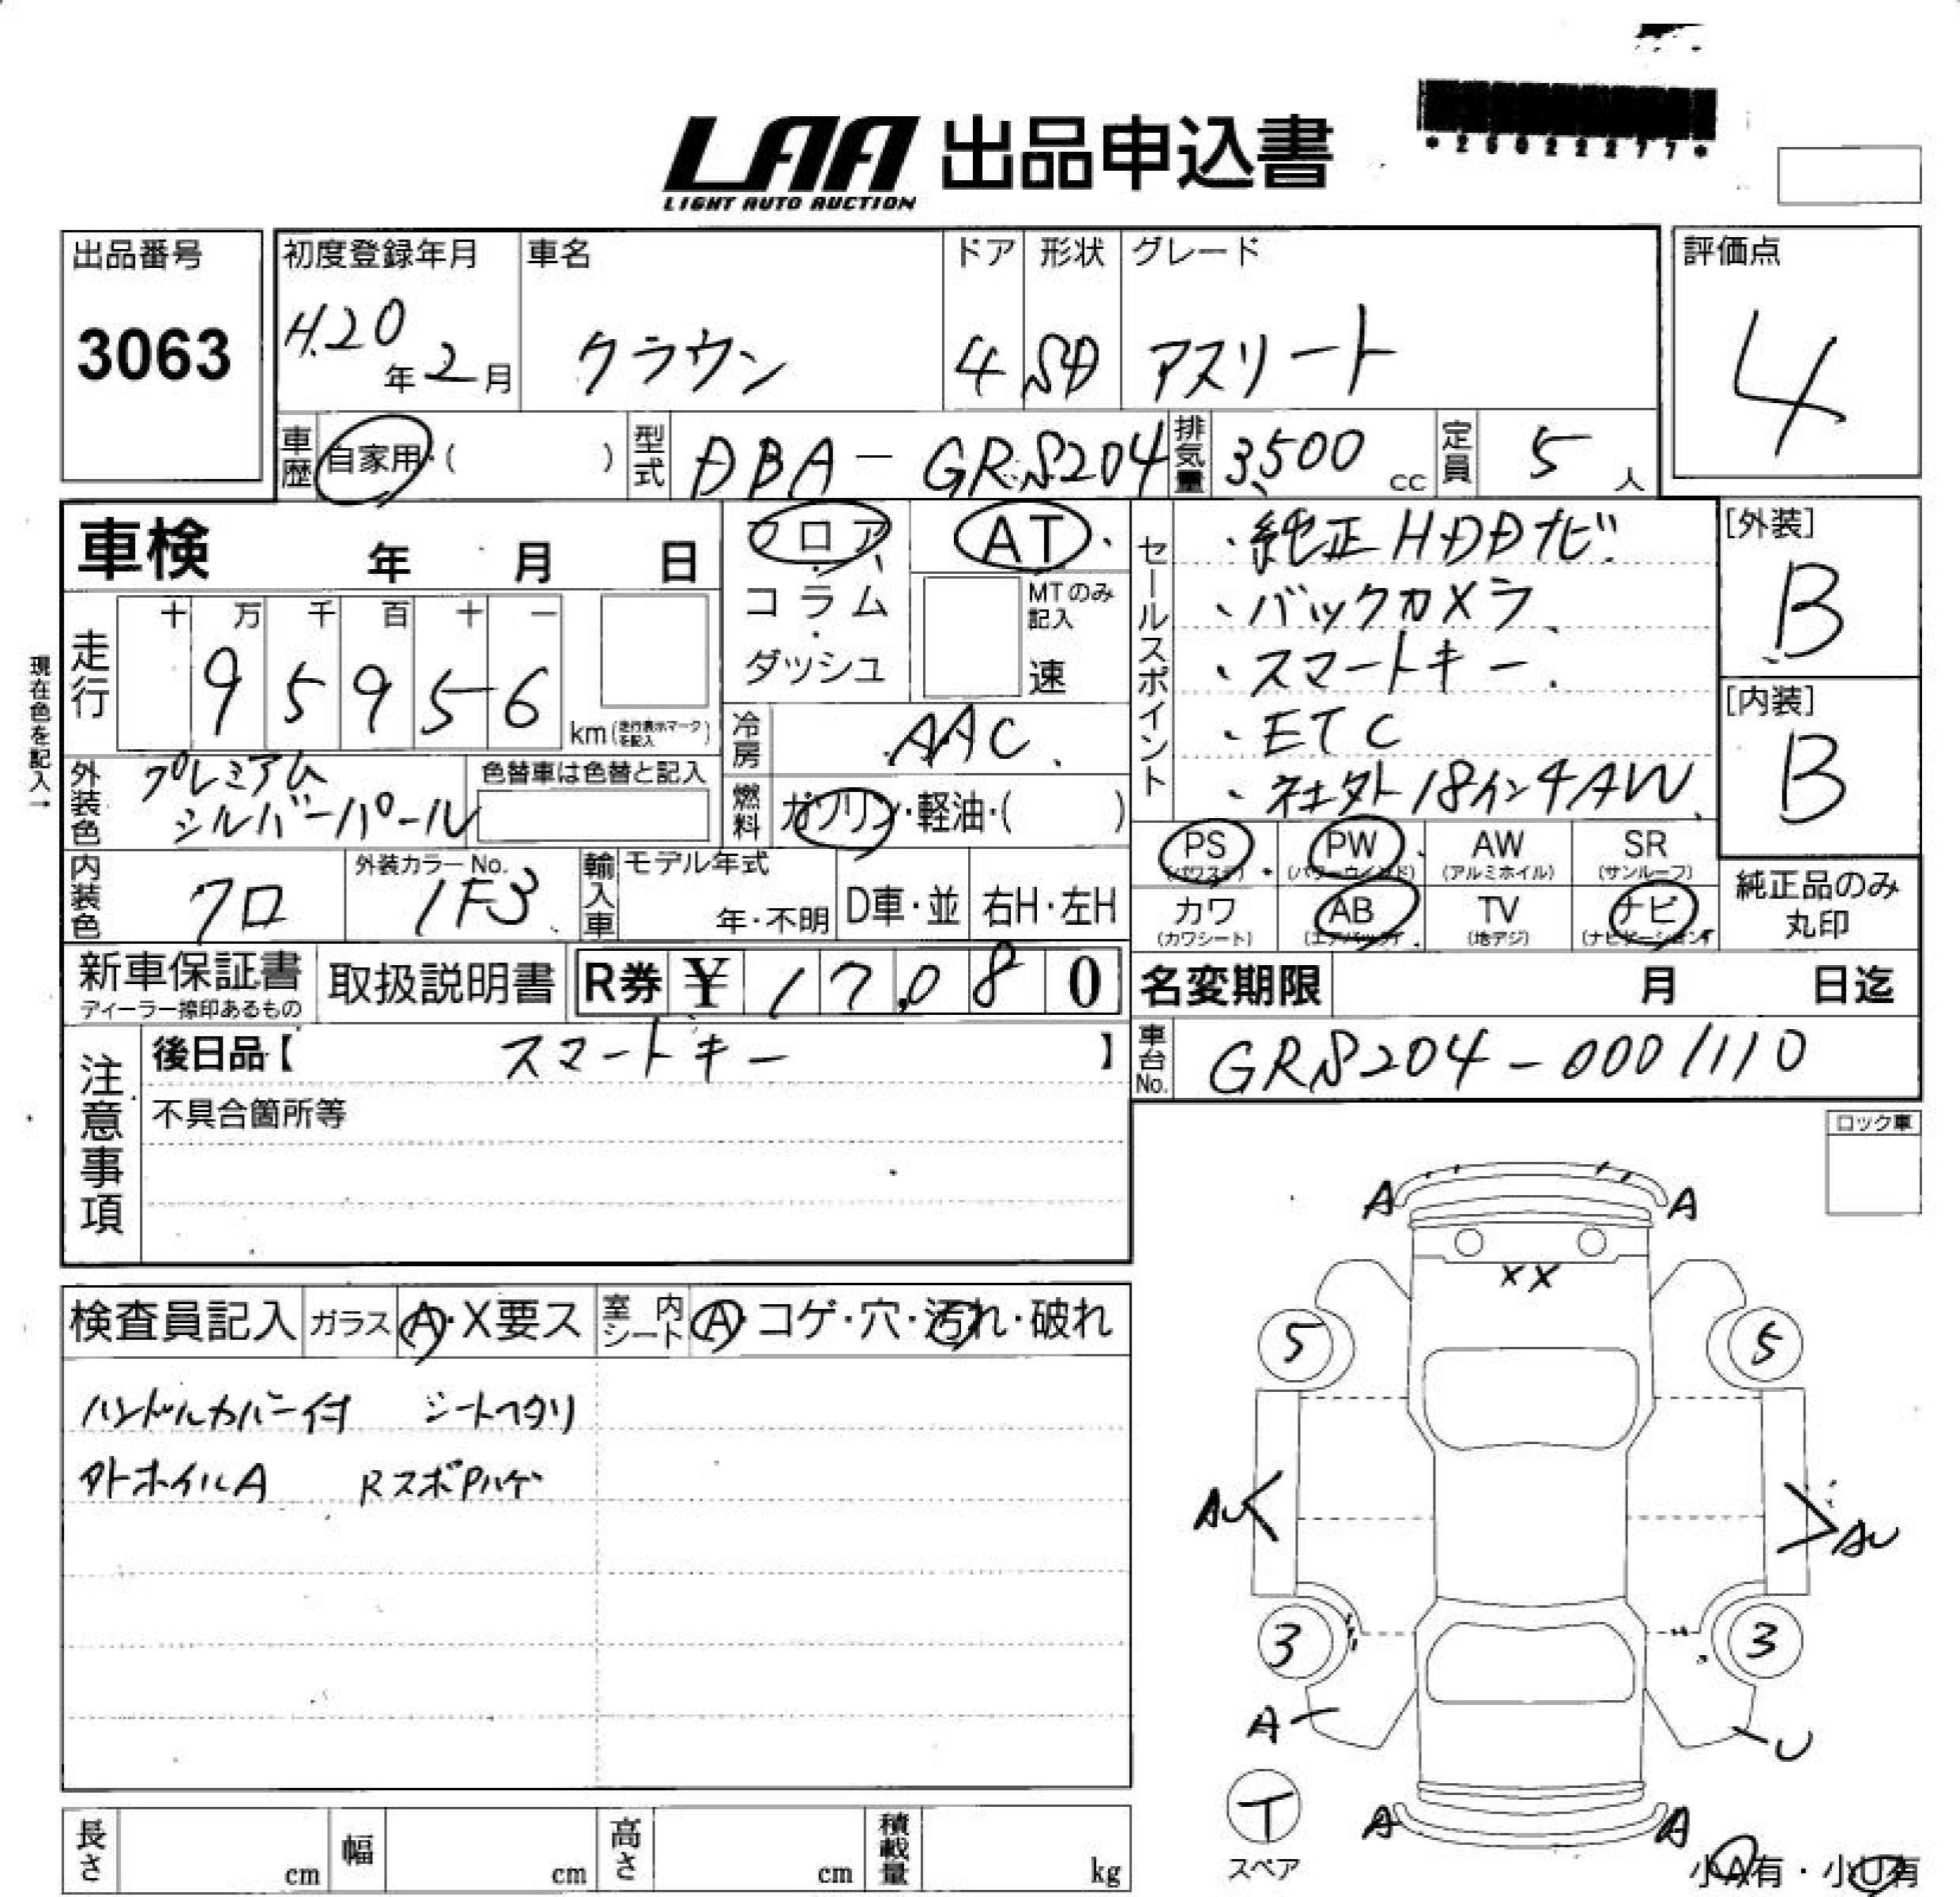 LAA 出品申込書
LIGHT AUTO AUCTION
*25022277*
出品番号
3063
初度登録年月
H.20年2月
車名
クラウン
ドア
4
形状
SD
グレード
アスリート
評価点
4
車歴
自家用・( )
型式
DBA-GRS204
排気量
3,500 cc
定員
5 人
車検 年 月 日
フロア・
コラム
・
ダッシュ
AT・
MTのみ記入
速
セールスポイント
・純正HDDナビ
、バックカメラ
・スマートキー
・ETC
・社外18インチAW
[外装]
B
[内装]
B
現在色を記入→
走行
十 万 千 百 十 一
9 5 9 5 6
km(走行表示マークを記入)
冷房
AAC
外装色
プレミアム
シルバーパール
色替車は色替と記入
燃料
ガソリン・軽油・( )
PS (パワステ)
PW (パワーウインド)
AW (アルミホイル)
SR (サンルーフ)
カワ (カワシート)
AB (エアバック)
TV (地デジ)
ナビ (ナビゲーション)
純正品のみ
丸印
内装色
クロ
外装カラーNo.
1F3
輸入車
モデル年式
年・不明
D車・並
右H・左H
新車保証書
ディーラー捺印あるもの
取扱説明書
R券 ¥ 17,080
名変期限 月 日迄
注意事項
後日品【 スマートキー 】
不具合箇所等
車台No.
GRS204-0001110
ロック車
検査員記入
ガラス
A・X要ス
室内シート
A・コゲ・穴・汚れ・破れ
ハンドルカバー付 シートヘタリ
外ホイルA RスポPハゲ
A A
XX
5 5
AU AU
3 3
A U
T
スペア
A A
小A有・小U有
長さ cm
幅 cm
高さ cm
積載量 kg